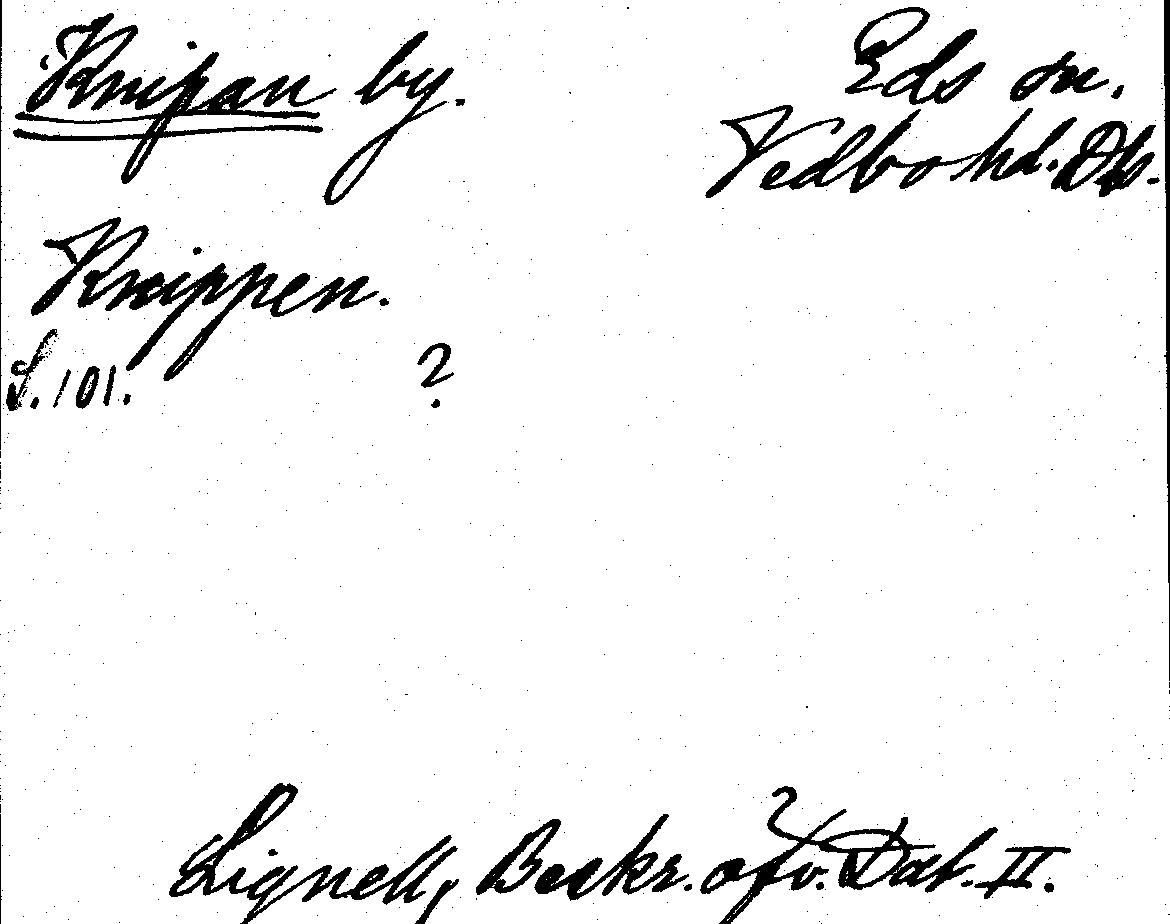 Knipan by.
Eds sn.
Vedbo hd. Dls.
Knippen.
S. 101. ?
Lignell, Beskr. öfv. Dal. II.